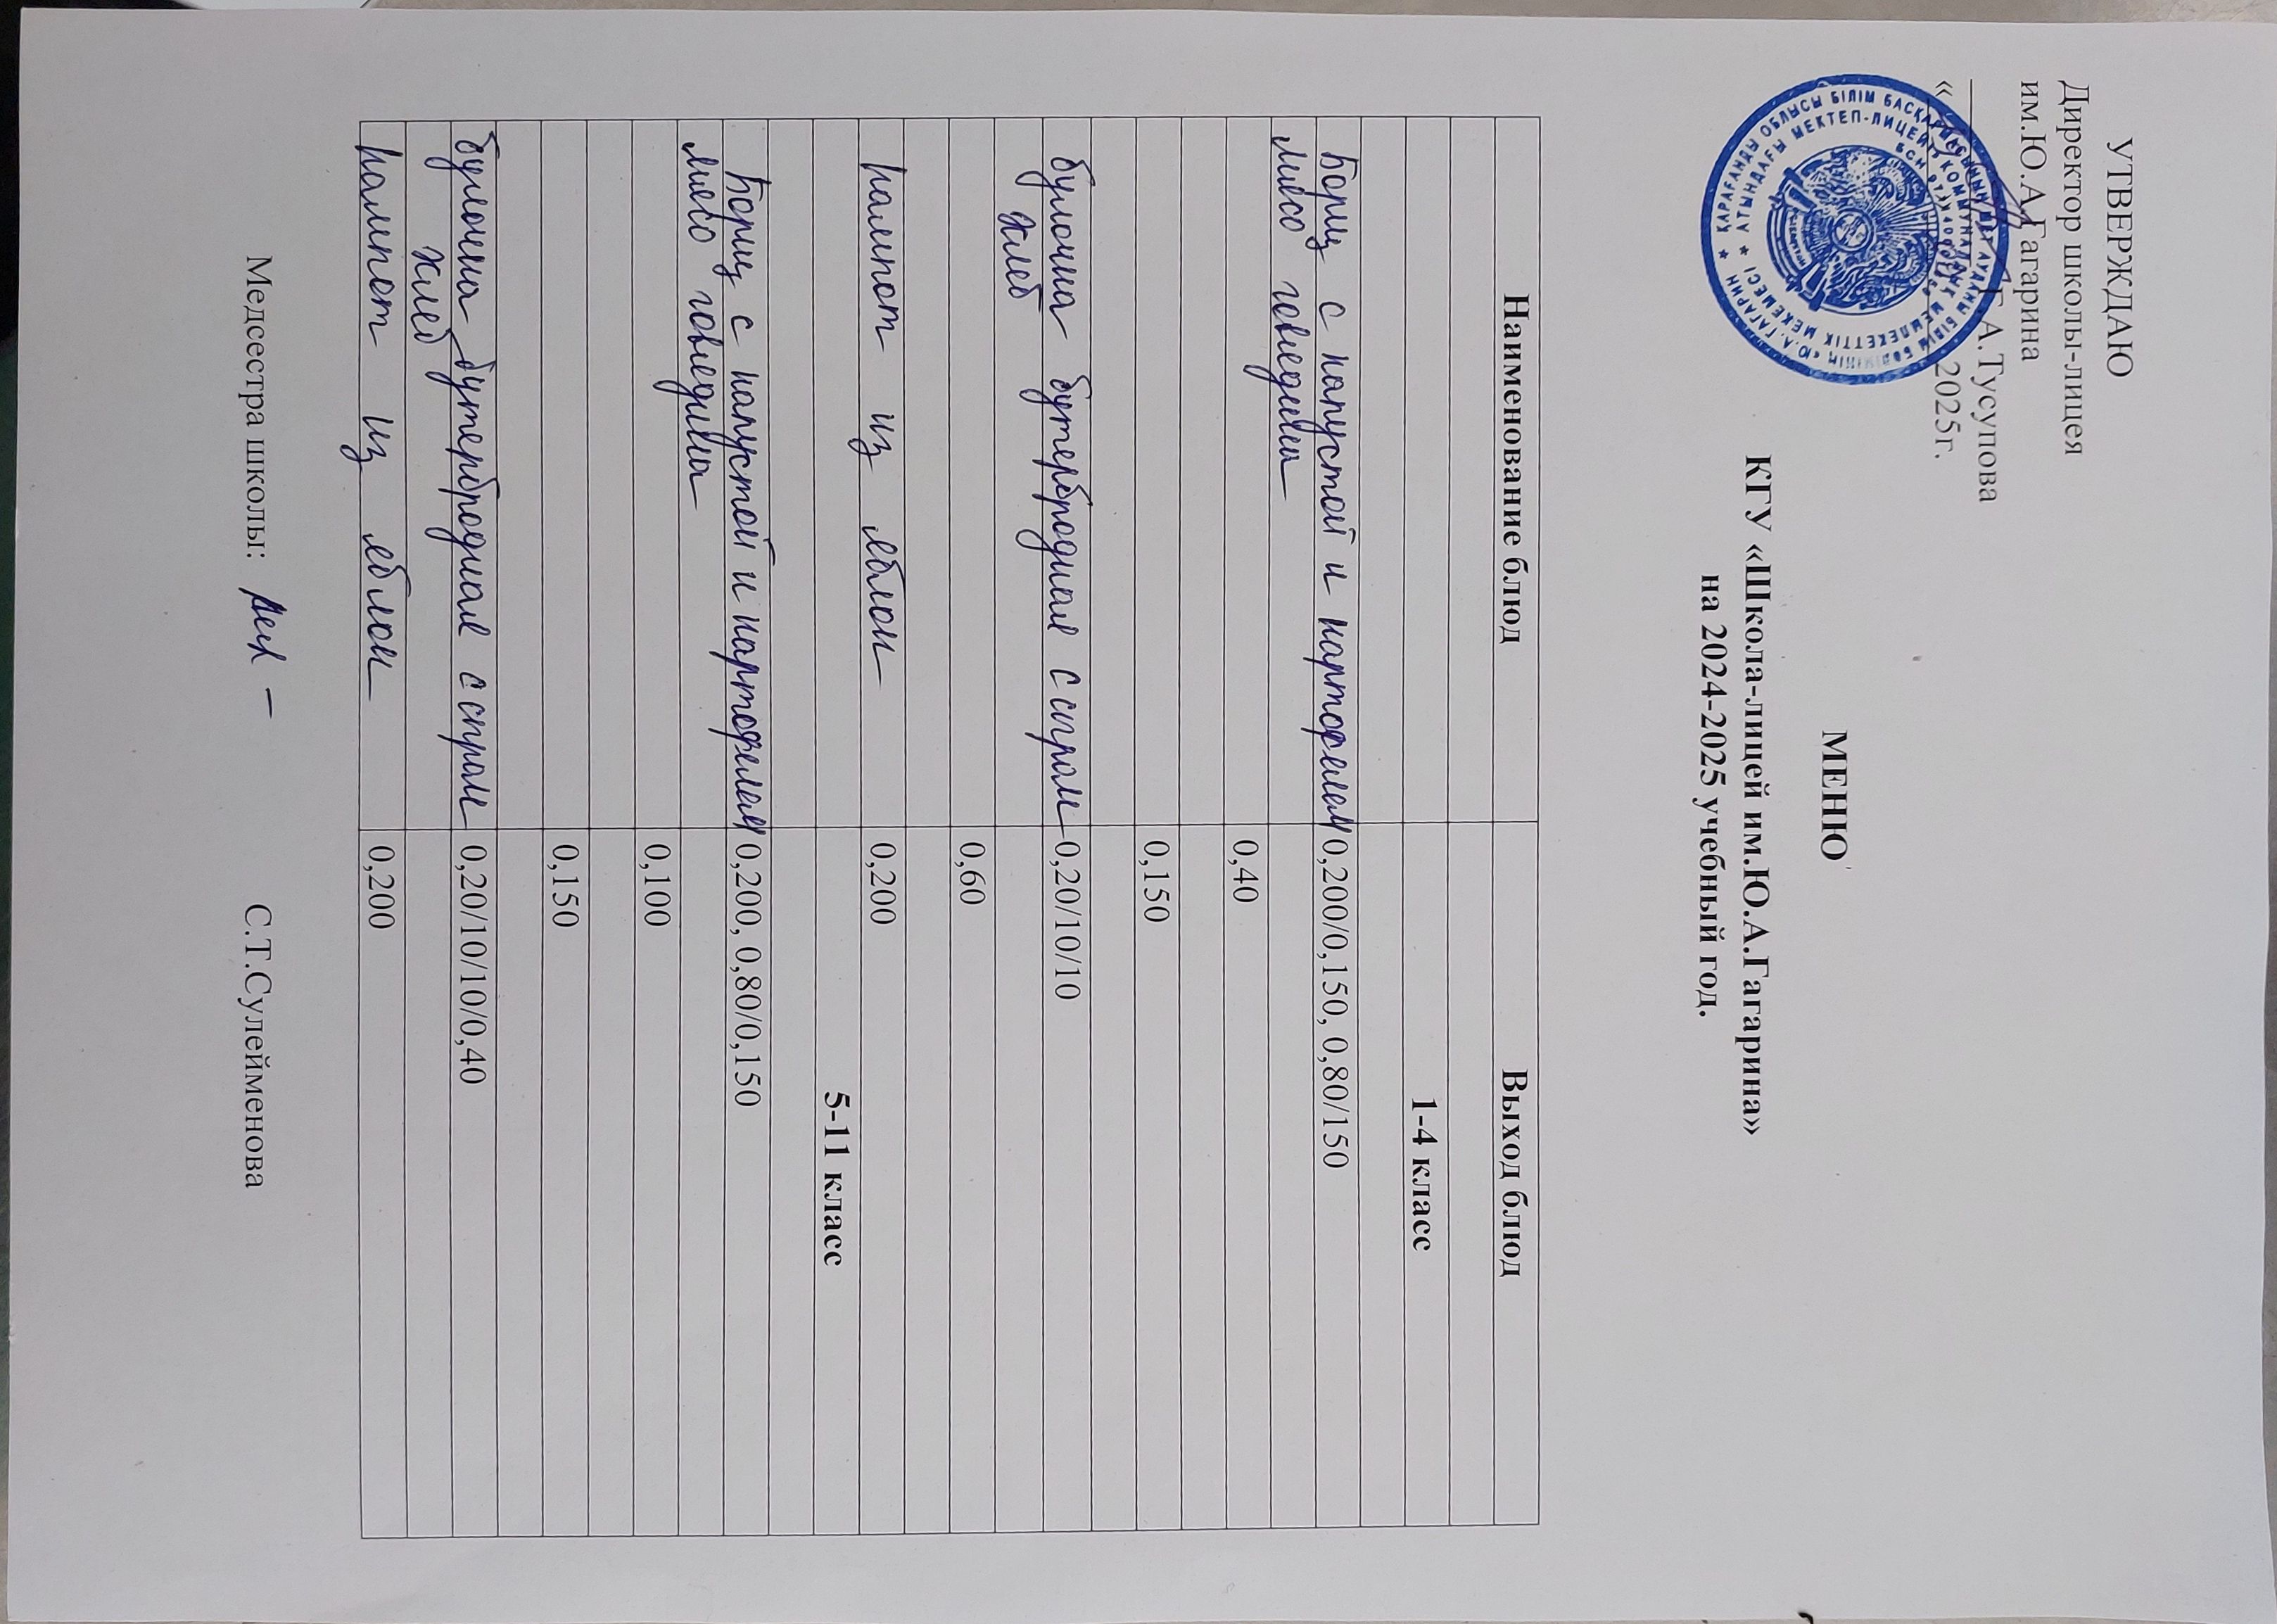 УТВЕРЖДАЮ
Директор школы-лицея
им.Ю.А.Гагарина
Г.А.Тусупова
« 2025г.
МЕНЮ
КГУ «Школа-лицей им.Ю.А.Гагарина»
на 2024-2025 учебный год.
Наименование блюд Выход блюд
1-4 класс
Борщ с капустой и картофелем 0,200/0,150, 0,80/150
мясо говядина
0,40
0,150
булочка бутербродная с сыром 0,20/10/10
хлеб
0,60
компот из яблок 0,200
5-11 класс
Борщ с капустой и картофелем 0,200, 0,80/0,150
мясо говядина
0,100
0,150
булочка бутербродная с сыром 0,20/10/10/0,40
хлеб
компот из яблок 0,200
Медсестра школы: С.Т.Сулейменова